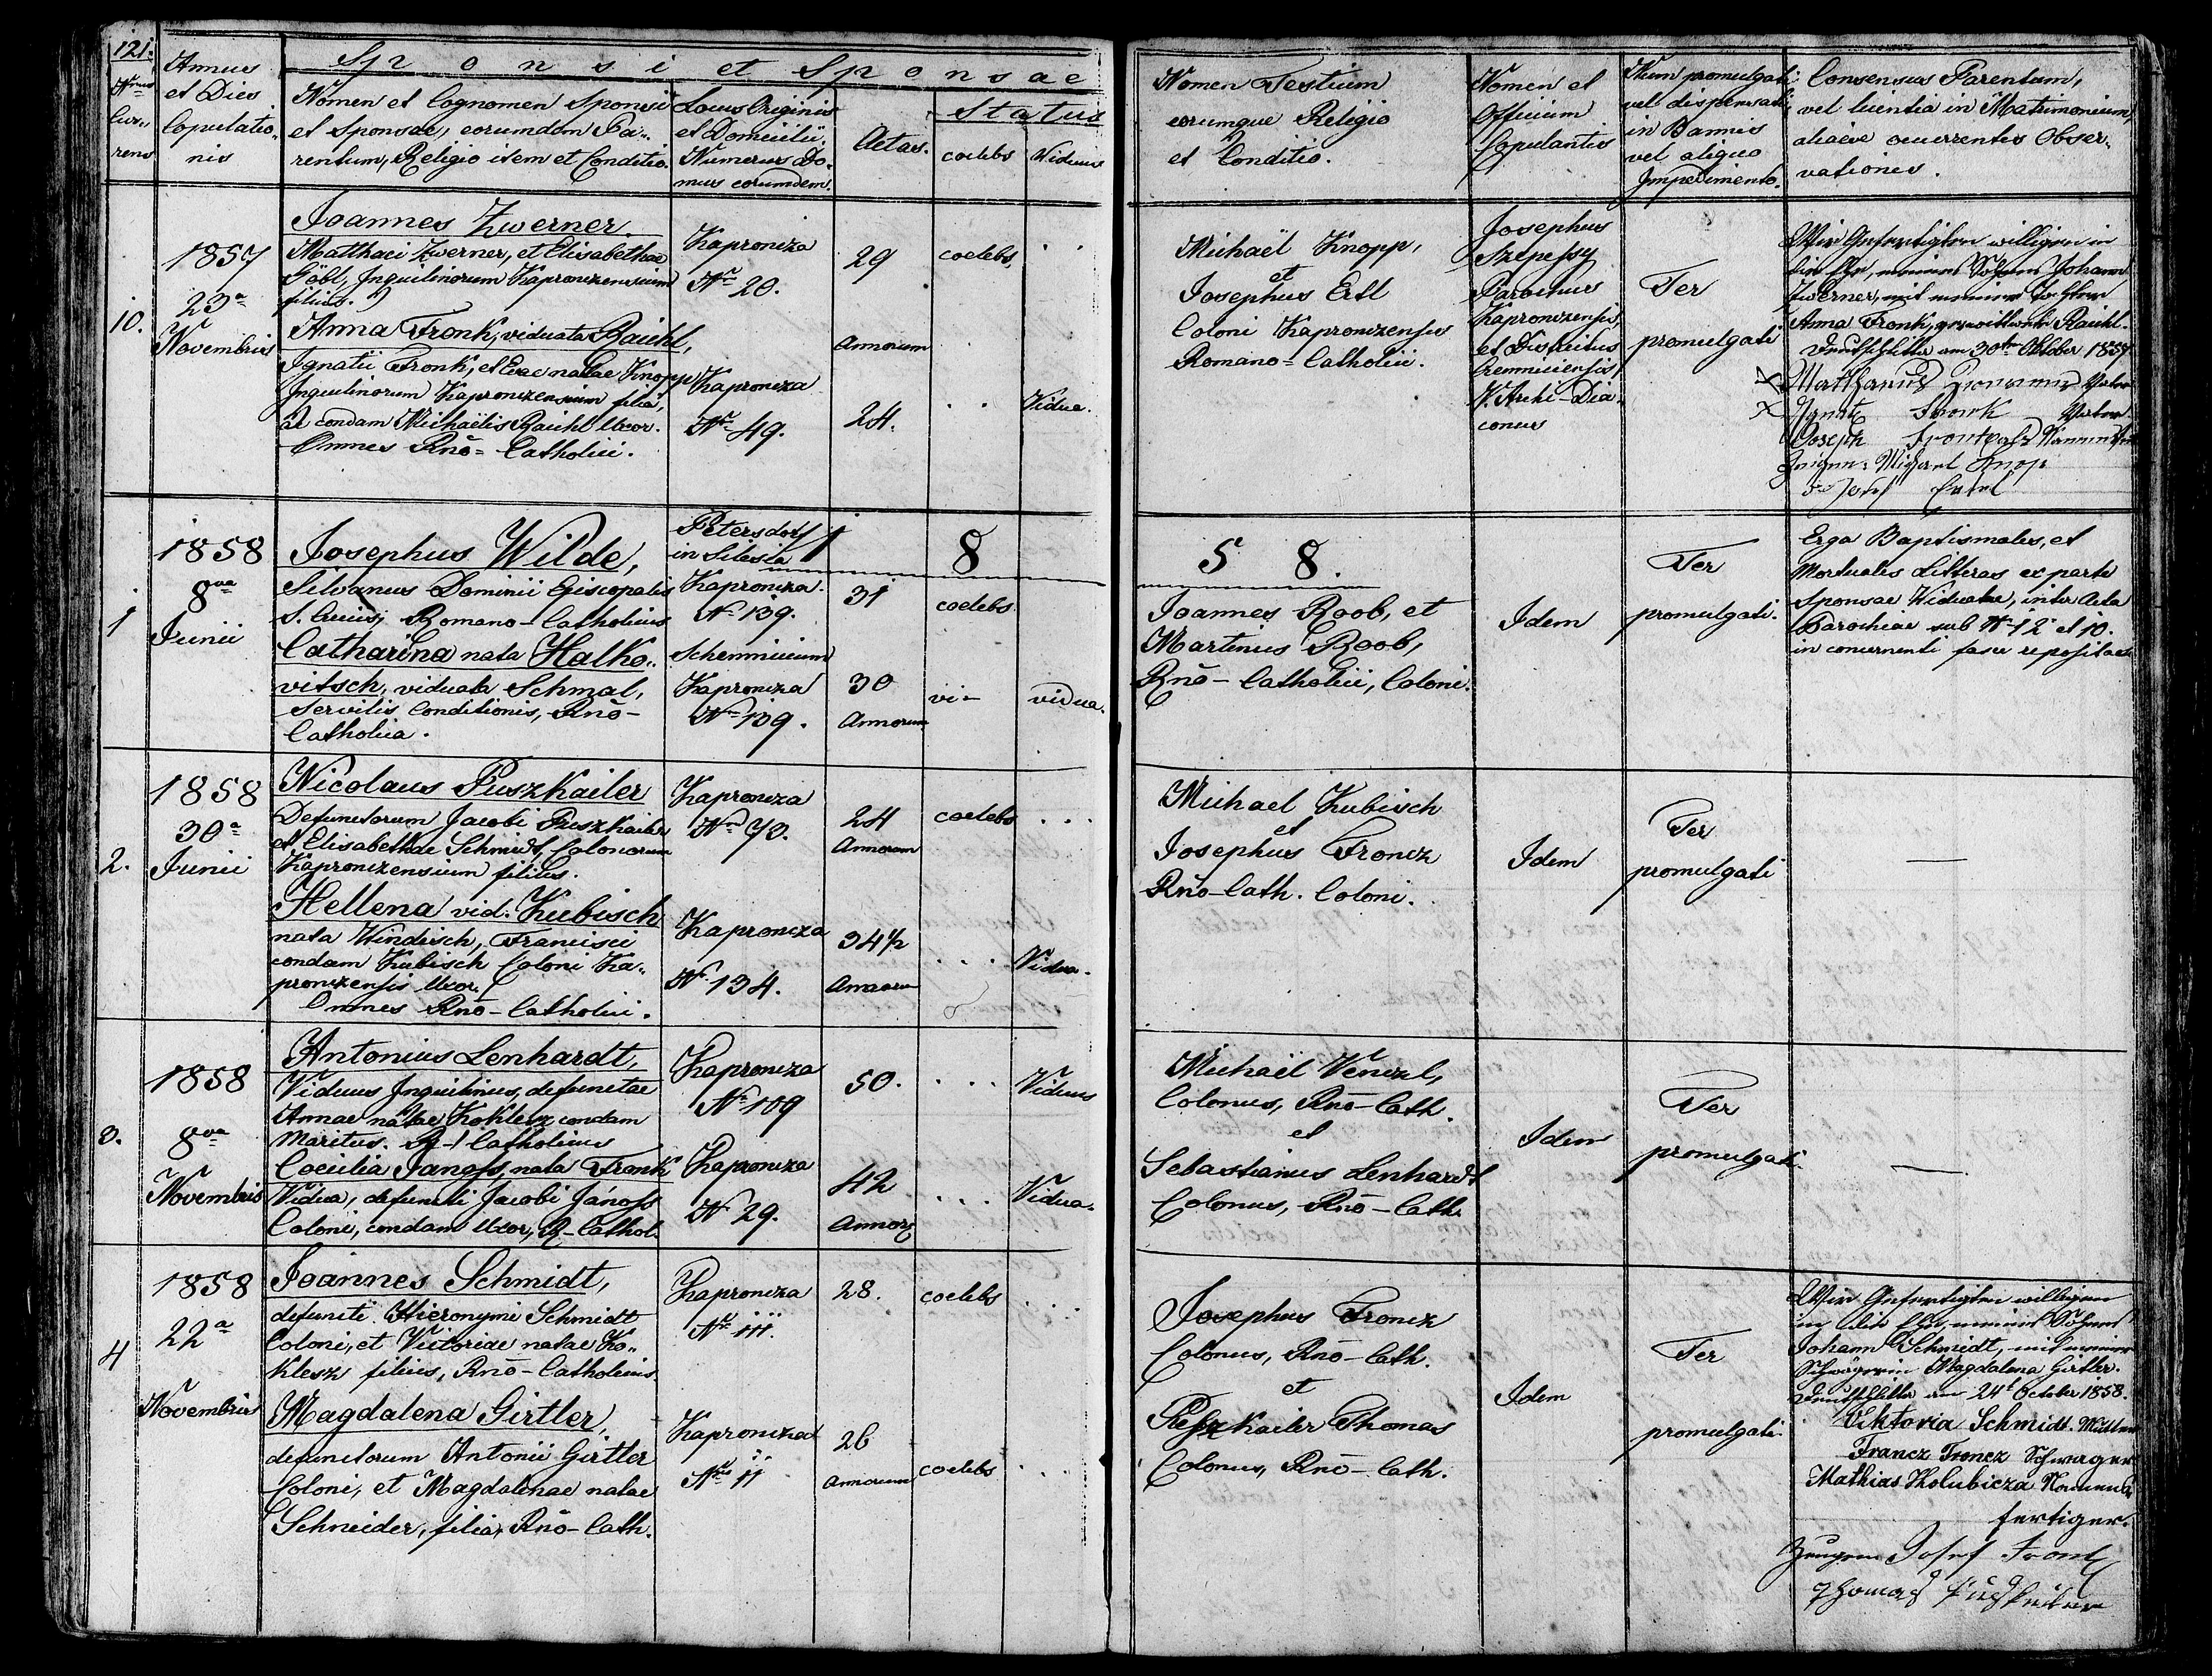 121.
Nrus
Cur-
rens
Annus
et Dies
Copulatio-
nis
Sponsi et Sponsae
Nomen et Cognomen Sponsi
et Sponsae, eorumdem Pa-
rentum, Religio item et Conditio.
Locus Originis
et Domicilii.
Numerus Do-
mus eorumdem.
Aetas.
Status
coelebs
Viduus
Nomen Testium
eorumque Religio
et Conditio.
Nomen et
Officium
Copulantis
Num promulgati
vel dispensati
in Bannis
vel aliquo
Impedimento.
Consensus Parentum,
vel licentia in Matrimonium,
aliaeve occurrentes Obser-
vationes.
10.
1857
23a
Novembris
Joannes Zwerner.
Matthaei Zwerner, et Elisabethae
Göbl, Inquilinorum Kaproniczensium
filius.
Anna Fronk, viduata Raichl,
Ignatii Fronk, et Evae natae Knopp
Inquilinorum Kaproniczensium filia,
ac condam Michaëlis Raichl Uxor.
Omnes Rno-Catholici.
Kapronicza
Nr 20.
Kapronicza
Nr 49.
29
Annorum
24.
coelebs
Vidua.
Michaël Knopp,
et
Josephus Ertl
Coloni Kaproniczenses
Romano-Catholici.
Josephus
Szepessy
Parochus
Kaproniczensis,
et Districtus
Cremniciensis
V. Archi-Dia-
conus
Ter
promulgati
Wir Gefertigten willigen in
die Ehe, meines Sohnes Johann
Zwerner, mit meiner Tochter
Anna Fronk, verwittwete Raichl.
Deutschlitta am 30ten Oktober 1857
x Matthaeus Zwerner Vater
x Ignatz Fronk Vater
Joseph
Zeugen: Michael Knop
Josef Ertel
1
1858
8va
Junii
Josephus Wilde,
Silvanus Dominii Episcopalis
S. Crucis, Romano-Catholicus
Catharina nata Halko-
vitsch, viduata Schmal,
Servilis Conditionis, Rno-
Catholica.
Petersdorf
in Silesia
Kapronicza.
Nr 139.
Schemnicium
Kapronicza
Nr 139.
1 8 5 8.
31
30
Annorum
coelebs
vi-
vidua.
Joannes Roob, et
Martinus Roob,
Rno-Catholici, Coloni.
Idem
Ter
promulgati.
Erga Baptismales, et
Mortuales Litteras ex parte
Sponsae Viduatae, inter Acta
Parochiae sub Nr 12 et 10.
in concernenti fasce repositae
2.
1858
30a
Junii
Nicolaus Puszkailer
Defunctorum Jacobi Puszkailer
et Elisabethae Schmidt, Colonorum
Kaproniczensium filius.
Hellena vid. Kubisch
nata Windisch, Francisci
condam Kubisch Coloni Ka-
proniczensis Uxor.
Omnes Rno-Catholici.
Kapronicza
Nr 73.
Kapronicza
Nr 134.
24
Annorum
34 1/2
Annorum
coelebs
Vidua.
Michael Kubisch
et
Josephus Froncz
Rno-Cath. Coloni.
Idem
Ter
promulgati
3.
1858
8va
Novembris
Antonius Lenhardt,
Viduus Inquilinus, defunctae
Annae natae Koklesz condam
Maritus. R-Catholicus
Coecilia Janoss, nata Fronk
Vidua, defuncti Jacobi Jánoss
Coloni, condam Uxor, R-Cathol.
Kapronicza
Nr 109
Kapronicza
Nr 29.
50.
42
Annor
Viduus
Vidua.
Michaël Venczl,
Colonus, Rno-Cath.
et
Sebastianus Lenhardt
Colonus, Rno-Cath.
Idem
Ter
promulgati.
4
1858
22a
Novembris
Joannes Schmidt,
defuncti Hieronymi Schmidt
Coloni, et Victoriae natae Ko-
klesz filius, Rno-Catholicus.
Magdalena Girtler,
defunctorum Antonii Girtler
Coloni, et Magdalenae natae
Schneider, filia, Rno-Cath.
Kapronicza
Nr 111.
Kapronicza
Nrus 11
28.
26
Annorum
coelebs
coelebs
Josephus Froncz
Colonus, Rno-Cath.
et
Thomas
Colonus, Rno-Cath.
Idem
Ter
promulgati
Wir Gefertigten willigen
in die Ehe, meines Sohnes
Johann Schmidt, mit meiner
Schwägerin Magdalena Girtler.
Deutschlitta am 24t October 1858.
Viktoria Schmidt. Mutter
Francz Froncz Schwager
Mathias Holubicza Namens-
fertiger.
Zeugen Josef
Thomas